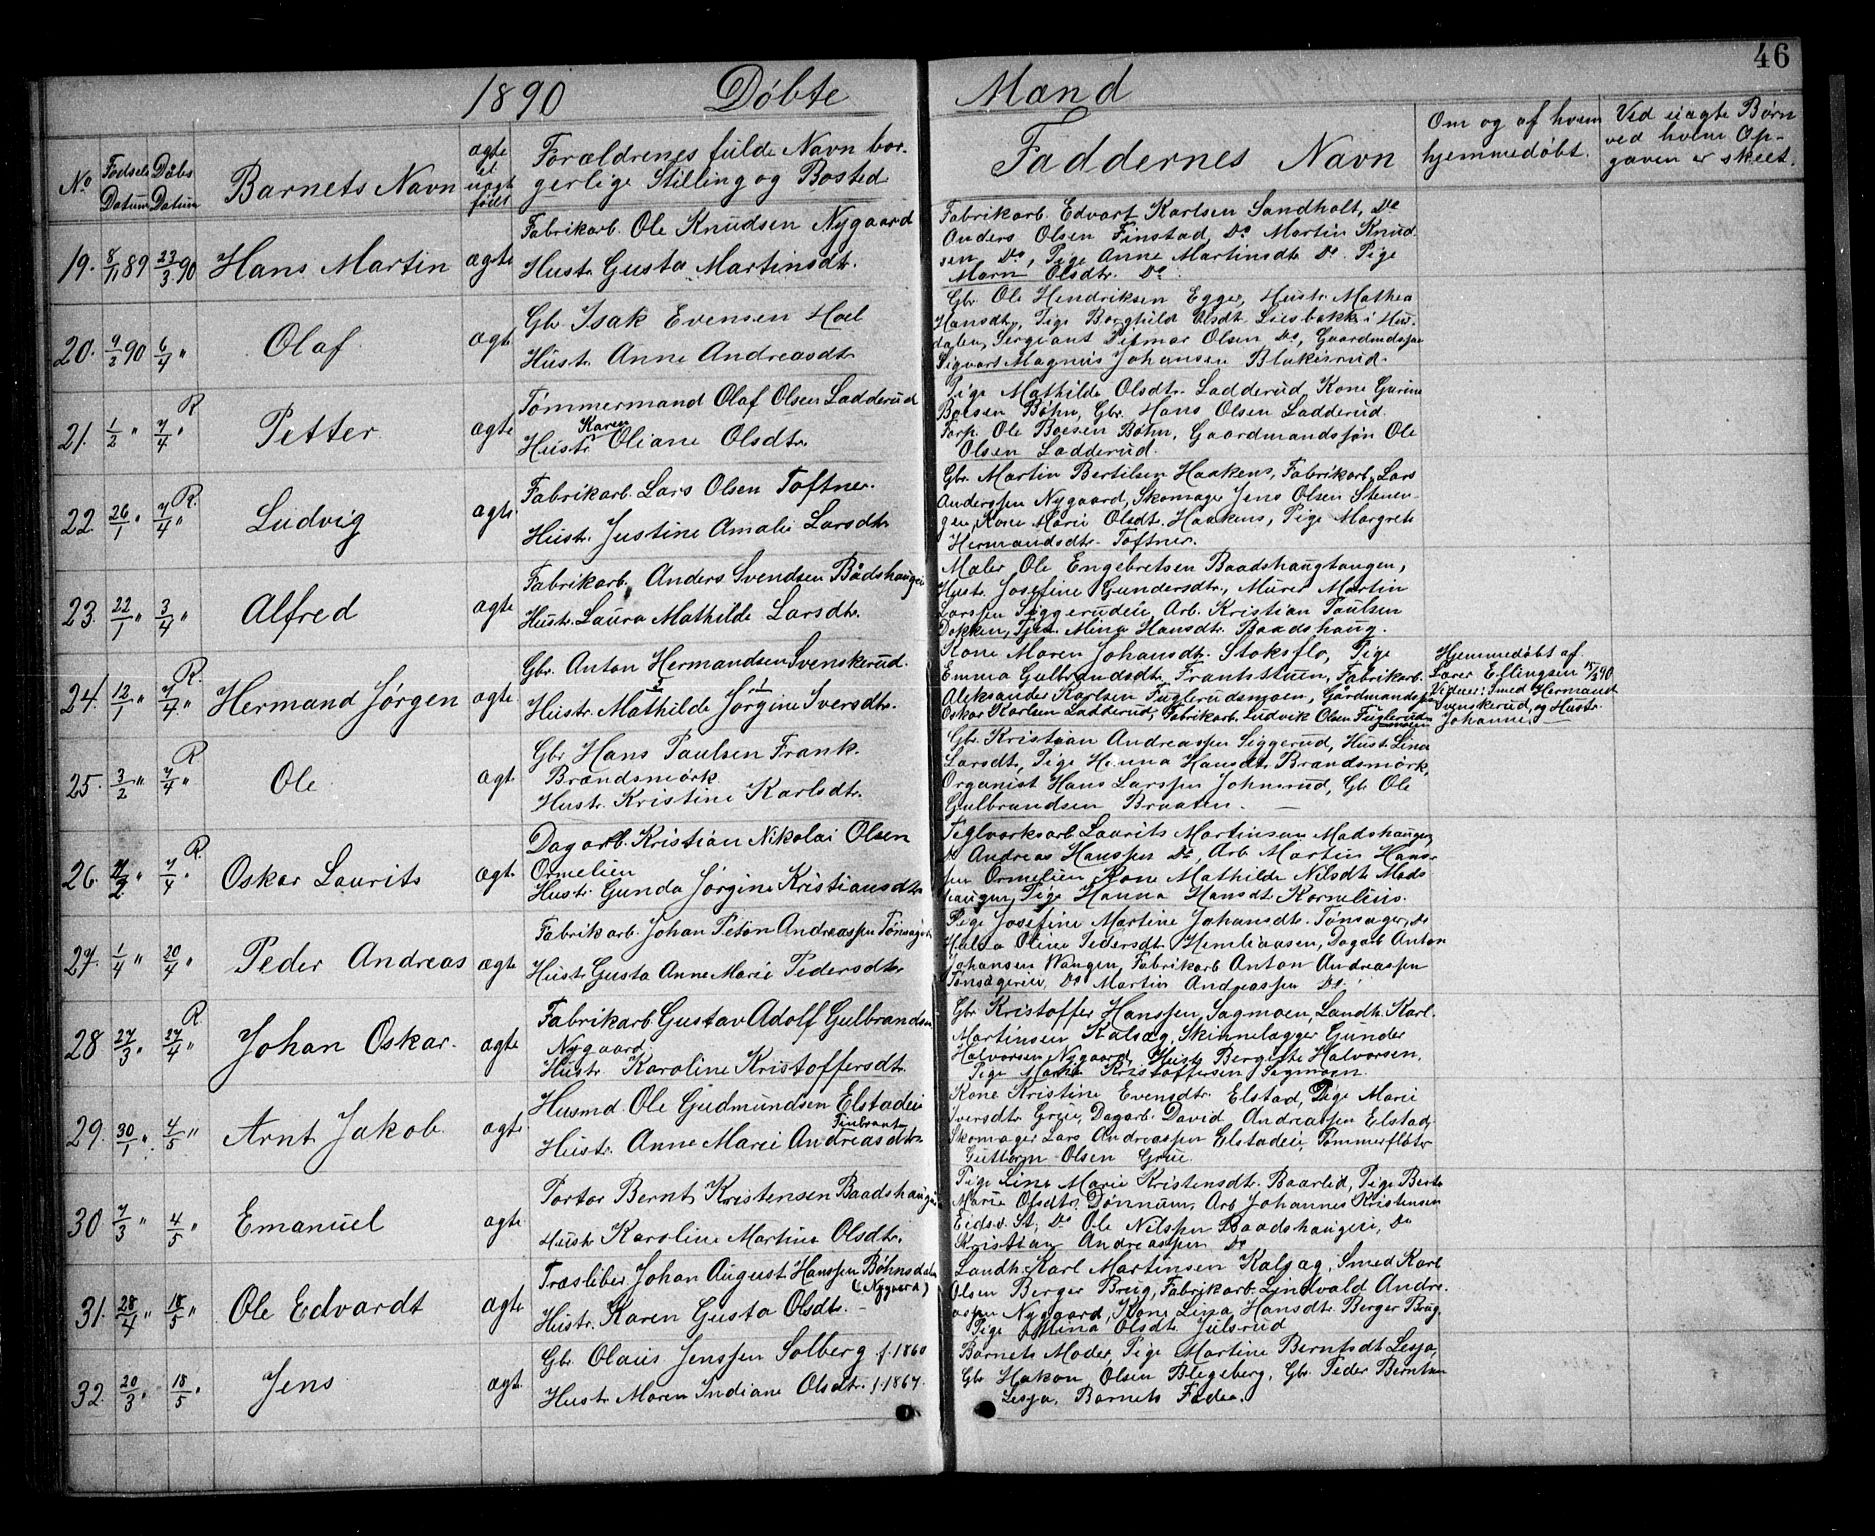 46
1890 Døbte Mænd
No Fødsels Datum Døbs Datum Barnets Navn ægte el uægt født Forældrenes fulde Navn bor-
gerlige Stilling og Bosted
Faddernes Navn
Om og af hvem
hjemmedøbt.
Ved uægte Børn
ved hvem Op-
gaven er skeet.
19. 8/11 89 23/3 90 Hans Martin ægte
Fabrikarb. Ole Knudsen Nygaard
Hustr. Gusta Martinsdt.
Fabrikarb. Edvart Karlsen Sandholt, Do
Anders Olsen Finstad, Do Martin Knud-
sen Do, Pige Anne Martinsdt. Do. Pige
Marn Olsdtr. Do
20. 9/2 90 6/4 " Olaf ægte
Gbr. Isak Evensen Hoel
Hustr. Anne Andreasdt.
Gbr. Ole Hendriksen Egger, Hustr. Mathea
Hansdtr, Pige Borghild Olsdt. Liesbakk i Hur-
dalen, Sergiant Ditmar Olsen Do, Gaardmdssøn
Sigvart Magnus Johansen Blukerud.
21. 1/2 " 7/4 " R Petter ægte
Tømmermand Olaf Olsen Ladderud
Karen
Hustr. Oliane Olsdtr.
Pige Mathilde Olsdtr. Ladderud, Kone Gurine
Boesen Bøhn, Gbr. Hans Olsen Ladderud.
Forp. Ole Boesen Bøhn, Gaardmandssøn Ole
Olsen Ladderud.
22. 26/1 " 7/4 " R. Ludvig ægte
Fabrikarb. Lars Olsen Toftner.
Hustr. Justine Amalie Larsdt.
Gbr. Martin Bertilsen Haakens, Fabrikarb. Lars
Anderssen Nygaard, Skomager Jens Olsen Stenen-
gen, Kone Marie Olsdt. Haakens, Pige Margrete
Hermandsdtr. Toftner.
23. 22/1 " 3/4 " Alfred ægte
Fabrikarb. Anders Svendsen Bådshaugen
Hustr. Laura Mathilde Larsdt.
Maler Ole Engebretsen Baadshaugtangen,
Hustr. Josefine Gundersdtr., Murer Martin
Larssen Siggerudeie, Arb. Kristian Paulsen
Dokken, Tjen. Mina Hansdtr. Baadshaug.
24. 12/1 " 7/4 " R. Hermand Jørgen ægte
Gbr. Anton Hermandsen Svenskerud.
Hustr. Mathilde Jørgine Iversdtr.
Kone Maren Johansdt. Stoksflo, Pige
Emma Gulbrandsdt. Frantstuen, Fabrikarb.
Aleksander Karlsen Fuglerudsmoen, Gårdmandss.
Oskar Karlsen Ladderud, Fabrikarb. Ludvik Olsen Fuglerudsmoen
Hjemmedøbt af
Lærer Ellingsen 15/2 90
Vidner: Smed Hermand
Svenskerud, og Hustr.
Johanne
25. 3/2 " 7/4 " R Ole ægt.
Gbr. Hans Paulsen Frank.
Brandsmørk
Hustr. Kristine Karlsdt.
Gbr. Kristian Andreassen Siggerud, Hust. Lina
Larsdt., Pige Hanna Hansdt. Brandsmørk,
Organist Hans Larssen Johnsrud, Gb. Ole
Gulbrandsen Braaten.
26. 7/2 " 7/4 " R. Oskar Laurits ægte
Dagarb. Kristian Nikolai Olsen
Ormelien
Hustr. Gunda Jørgine Kristiansdtr.
Teglværksarb. Laurits Martinsen Madshaugen,
Do Andreas Hanssen Do, Arb. Martin Hans-
sen Ormelien, Kone Mathilde Nilsdt. Mads
haugen, Pige Hanna Hansdt. Kornelius.
27. 1/4 " 20/4 " Peder Andreas ægte
Fabrikarb. Johan Peton Andreassen Tonsager
Hustr. Gusta Anne Marie Pedersdtr.
Pige Josefine Martine Johansdt. Tonsager, Do
Hulda Oline Pedersdt. Hemliaasen, Dagarb. Anton
Johansen Wangen, Fabrikarb. Anton Andreassen
Tonsagereie, Do Martin Andreassen Do.
28 27/3 " 27/4 " R Johan Oskar. ægte
Fabrikarb. Gustav Adolf Gulbrandsen
Nygaard.
Hustr. Karoline Kristoffersdt.
Gbr. Kristoffer Hanssen, Sagmoen, Landh. Karl
Martinsen Kalsæg, Skinnelægger Gunder
Halvorsen Nygaard, Hustr. Bergitte Halvorsen,
Pige Marie Kristoffersen Sagmoen.
29. 30/1 " 4/5 " Arnt Jakob ægte
Husmd. Ole Gudmundsen Elstadeie
Hustr. Anne Marie Andreasdtr.
Kone Kristine Evensdtr. Elstad, Pige Marie
Iversdtr. Grue, Dagarb. David Andreassen Elstad,
Skomager Lars Andreassen Elstadeie, Tømmerfløter
Guttorm Olsen Grue.
30 7/3 " 4/5 " Emanuel ægte
Portør Bernt Kristensen Baadshaugen
Hustr. Karoline Martine Olsdtr.
Pige Lina Marie Kristensdt. Baarlid, Pige Berte
Marie Olsdtr. Dønnum, Arb. Johannes Kristensen
Eidsv. St., Do Ole Nilssen Baadshaugen, Do
Kristian Andreassen Do
31. 28/4 " 18/5 " Ole Edvardt ægte
Træsliber Johan August Hanssen Bøhnsdalen
(Nygaard)
Hustr. Karen Gusta Olsdt.
Landh. Karl Martinsen Kalsæg, Smed Karl
Olsen Berger Brug, Fabrikarb. Lindvald Andre-
assen Nygaard, Kone Lina Hansdtr. Berger Brug,
Pige Mina Olsdt. Julsrud
32. 20/3 " 18/5 " Jens ægt.
Gbr. Olaus Jenssen Solberg f. 1860
Hustr. Maren Indiane Olsdtr. f. 1867.
Barnets Moder, Pige Martine Berntsdt. Lesja,
Gbr. Hakon Olsen Blegeberg, Gbr. Peder Berntsen
Lesja, Barnets Fader.